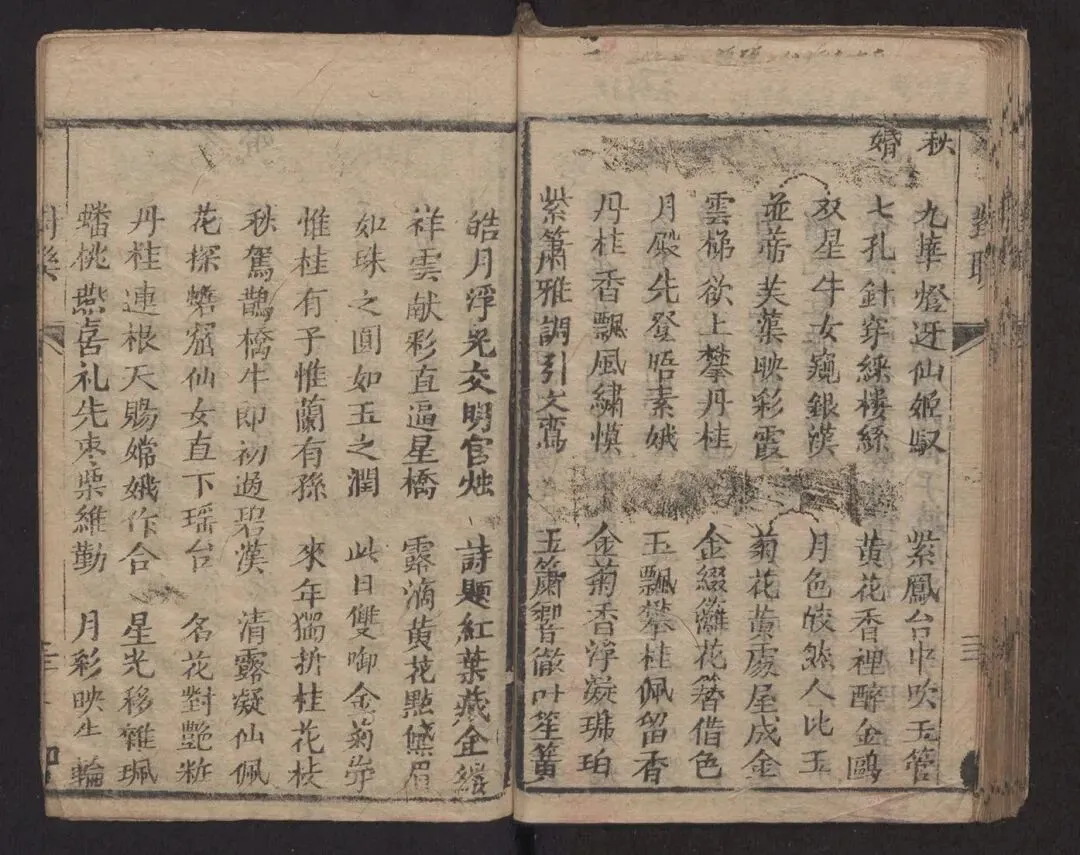 對聯
秋婚
九華燈迓仙姬馭 紫鳳台中吹玉管
七孔針穿綵楼絲 黄花香裡醉金鷗
双星牛女窺銀漢 月色皎然人比玉
並蒂芙蕖映彩霞 菊花黄處屋成金
雲梯欲上攀丹桂 金綴籬花簪借色
月殿先登晤素娥 玉飄攀桂佩留香
丹桂香飄風繡幙 金菊香浮凝琥珀
紫簫雅調引文鸞 玉簫響徹叶笙簧
三
皓月浮光交明官烛 詩題紅葉藏金縷
祥雲献彩直逼星橋 露滴黄花點黛眉
如珠之圓如玉之潤 此日雙啣金菊
惟桂有子惟蘭有孫 來年獨折桂花枝
秋駕鵲橋牛郎初過碧漢 清露凝仙佩
花探蟾窟仙女直下瑶台 名花對艷粧
丹桂連根天賜嫦娥作合 星光移雜珮
蟠桃燕喜礼先枣栗維勤 月彩映生輪